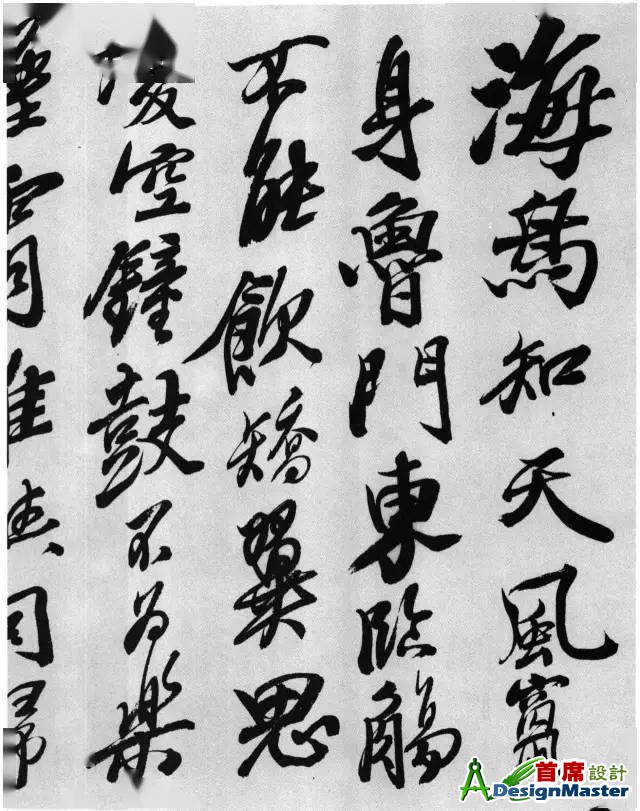 海鳥知天風竄
身魯門東臨觴
不能飲矯翼思
凌空鐘鼓不為樂
同歸
首席設計
DesignMaster